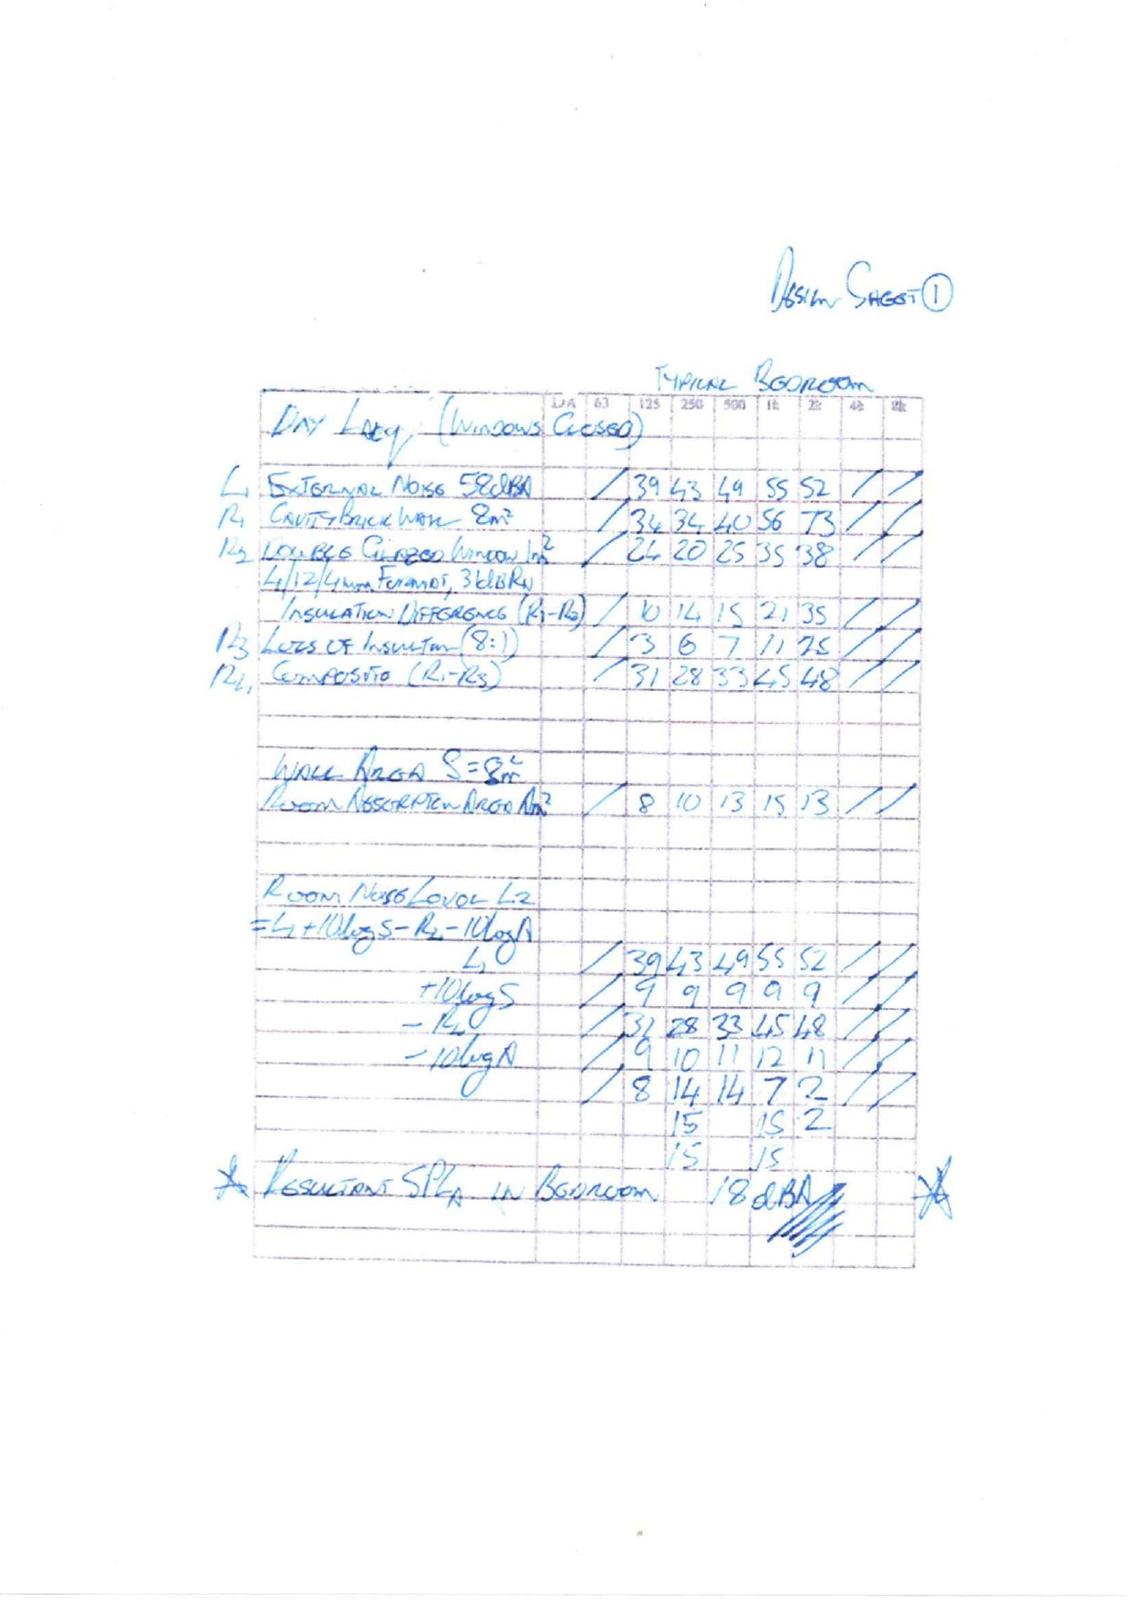 Design Sheet 1
Typical Bedroom
LIA 63 125 250 500 1k 2k 4k 8k
Day LAeq (Windows Closed)
L1 External Noise 58dBA / 39 43 49 55 52 / /
R1 Cavity Brick Wall 8m² / 34 34 40 56 73 / /
R2 Double Glazed Window 1m² / 24 20 25 35 38 / /
4/12/4mm Format, 31dBRw
Insulation Difference (R1-R2) / 10 14 15 21 35 / /
R3 Loss of Insulton (8:1) / 3 6 7 11 25 / /
R4 Composite (R1-R3) / 31 28 33 45 48 / /
Wall Area S=8m²
Room Absorption Area Am² / 8 10 13 15 13 / /
Room Noise Level L2
=L1+10logS-R4-10logA
L1 / 39 43 49 55 52 / /
+10logS / 9 9 9 9 9 / /
- R4 / 31 28 33 45 48 / /
-10logA / 9 10 11 12 11 / /
/ 8 14 14 7 2 / /
15 15 2
15 15
Resultant SPLA in Bedroom 18dBA